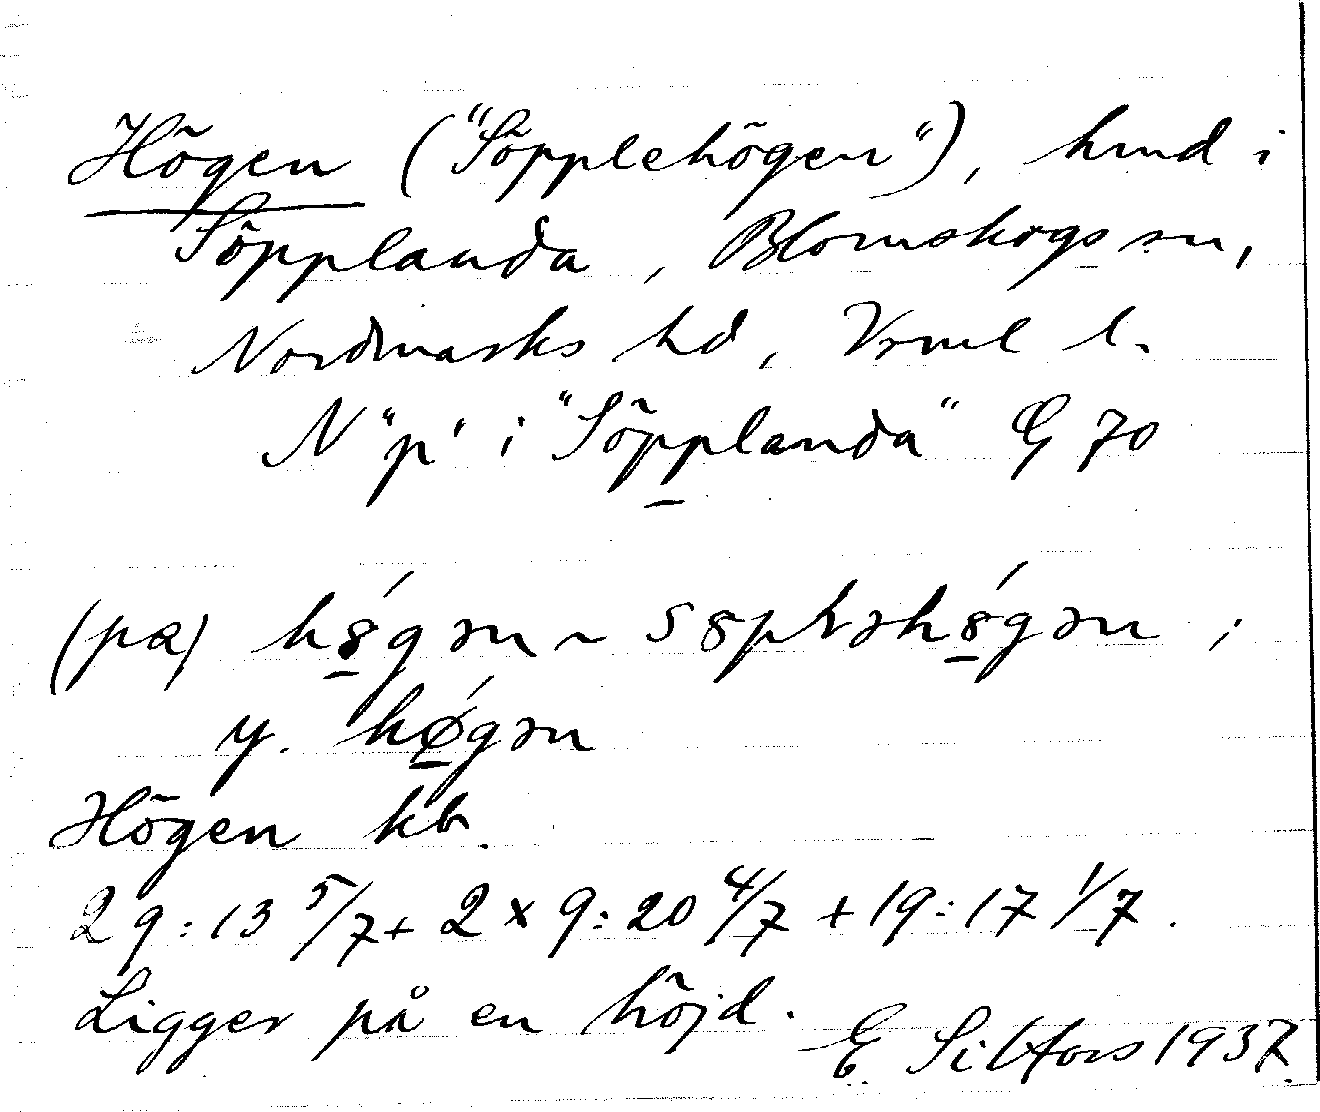 Högen ("Söpplehögen"), hmd i
Söpplanda, Blomskogs sn,
Nordmarks hd, Vrml l.
N "p" i "Söpplanda" G 70
(pa) högən ~ ;
y. hǿgən
Högen kb.
29:13 5/7 + 2 x 9:20 4/7 + 19:17 1/7.
Ligger på en höjd.
E Silfors 1937.